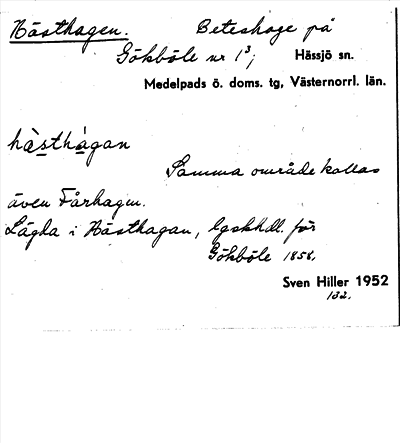 Hästhagen. Beteshage på
Gökböle nr 1³; Hässjö sn.
Medelpads ö. doms. tg, Västernorrl. län.
hàsthágan
Samma område kallas
även Fårhagen.
Lägda i Hästhagan, lgskhdl. för
Gökböle 1858.
Sven Hiller 1952
132.